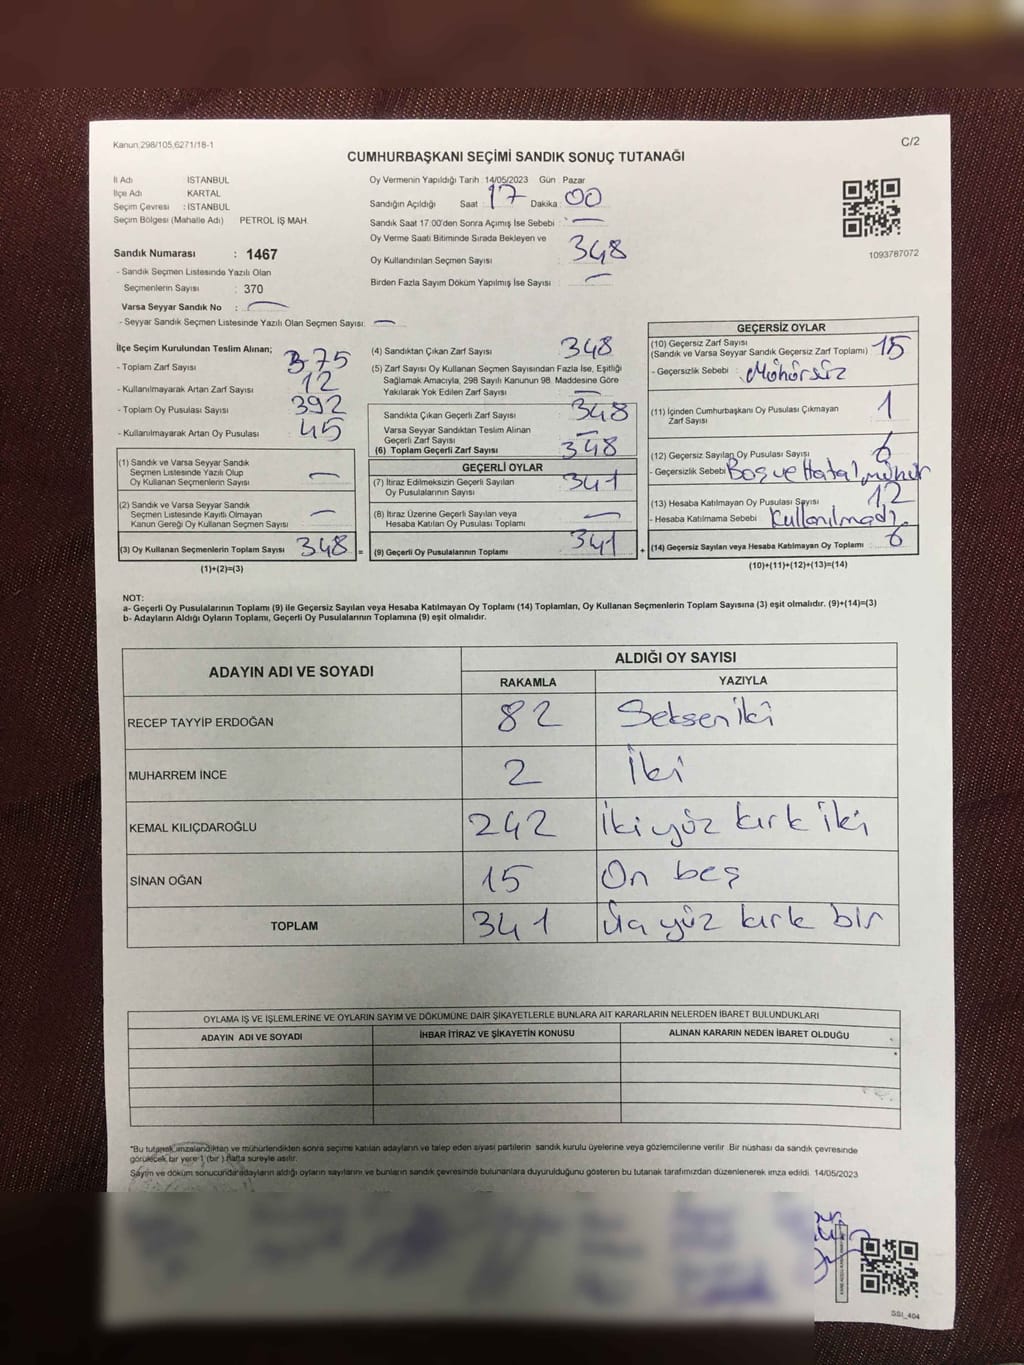 Kanun,298/105,6271/18-1
C/2
CUMHURBAŞKANI SEÇİMİ SANDIK SONUÇ TUTANAĞI
İl Adı İSTANBUL
İlçe Adı KARTAL
Seçim Çevresi : İSTANBUL
Seçim Bölgesi (Mahalle Adı) PETROL İŞ MAH.
Sandık Numarası : 1467
- Sandık Seçmen Listesinde Yazılı Olan
Seçmenlerin Sayısı : 370
Varsa Seyyar Sandık No : —
- Seyyar Sandık Seçmen Listesinde Yazılı Olan Seçmen Sayısı: —
Oy Vermenin Yapıldığı Tarih 14/05/2023 Gün : Pazar
Sandığın Açıldığı Saat : 17 Dakika : 00
Sandık Saat 17:00'den Sonra Açımış İse Sebebi : —
Oy Verme Saati Bitiminde Sırada Bekleyen ve
Oy Kullandırılan Seçmen Sayısı 348
Birden Fazla Sayım Döküm Yapılmış İse Sayısı : —
1093787072
İlçe Seçim Kurulundan Teslim Alınan;
- Toplam Zarf Sayısı 375
- Kullanılmayarak Artan Zarf Sayısı 12
- Toplam Oy Pusulası Sayısı 392
- Kullanılmayarak Artan Oy Pusulası 45
(1) Sandık ve Varsa Seyyar Sandık
Seçmen Listesinde Yazılı Olup
Oy Kullanan Seçmenlerin Sayısı —
(2) Sandık ve Varsa Seyyar Sandık
Seçmen Listesinde Kayıtlı Olmayan
Kanun Gereği Oy Kullanan Seçmen Sayısı —
(3) Oy Kullanan Seçmenlerin Toplam Sayısı 348 =
(1)+(2)=(3)
(4) Sandıktan Çıkan Zarf Sayısı 348
(5) Zarf Sayısı Oy Kullanan Seçmen Sayısından Fazla İse, Eşitliği
Sağlamak Amacıyla, 298 Sayılı Kanunun 98. Maddesine Göre
Yakılarak Yok Edilen Zarf Sayısı —
Sandıkta Çıkan Geçerli Zarf Sayısı 348
Varsa Seyyar Sandıktan Teslim Alınan
Geçerli Zarf Sayısı —
(6) Toplam Geçerli Zarf Sayısı 348
GEÇERLİ OYLAR
(7) İtiraz Edilmeksizin Geçerli Sayılan
Oy Pusulalarının Sayısı 341
(8) İtiraz Üzerine Geçerli Sayılan veya
Hesaba Katılan Oy Pusulası Toplamı —
(9) Geçerli Oy Pusulalarının Toplamı 341 +
GEÇERSİZ OYLAR
(10) Geçersiz Zarf Sayısı
(Sandık ve Varsa Seyyar Sandık Geçersiz Zarf Toplamı) 15
- Geçersizlik Sebebi : Mühürsüz
(11) İçinden Cumhurbaşkanı Oy Pusulası Çıkmayan
Zarf Sayısı 1
(12) Geçersiz Sayılan Oy Pusulası Sayısı 6
- Geçersizlik Sebebi Boş ve Hatalı mühür
(13) Hesaba Katılmayan Oy Pusulası Sayısı 12
- Hesaba Katılmama Sebebi Kullanılmadı.
(14) Geçersiz Sayılan veya Hesaba Katılmayan Oy Toplamı 6
(10)+(11)+(12)+(13)=(14)
NOT:
a- Geçerli Oy Pusulalarının Toplamı (9) ile Geçersiz Sayılan veya Hesaba Katılmayan Oy Toplamı (14) Toplamları, Oy Kullanan Seçmenlerin Toplam Sayısına (3) eşit olmalıdır. (9)+(14)=(3)
b- Adayların Aldığı Oyların Toplamı, Geçerli Oy Pusulalarının Toplamına (9) eşit olmalıdır.
ADAYIN ADI VE SOYADI ALDIĞI OY SAYISI
RAKAMLA YAZIYLA
RECEP TAYYİP ERDOĞAN 82 Seksen iki
MUHARREM İNCE 2 İki
KEMAL KILIÇDAROĞLU 242 İki yüz kırk iki
SİNAN OĞAN 15 On beş
TOPLAM 341 Üç yüz kırk bir
OYLAMA İŞ VE İŞLEMLERİNE VE OYLARIN SAYIM VE DÖKÜMÜNE DAİR ŞİKAYETLERLE BUNLARA AİT KARARLARIN NELERDEN İBARET BULUNDUKLARI
ADAYIN ADI VE SOYADI İHBAR İTİRAZ VE ŞİKAYETİN KONUSU ALINAN KARARIN NEDEN İBARET OLDUĞU
"Bu tutanak imzalandıktan ve mühürlendikten sonra seçime katılan adayların ve talep eden siyasi partilerin sandık kurulu üyelerine veya gözlemcilerine verilir Bir nüshası da sandık çevresinde
görülecek bir yere 1 (bir) hafta süreyle asılır.
Sayım ve döküm sonucunda adayların aldığı oyların sayılarını ve bunların sandık çevresinde bulunanlara duyurulduğunu gösteren bu tutanak tarafımızdan düzenlenerek imza edildi. 14/05/2023
SSI_404